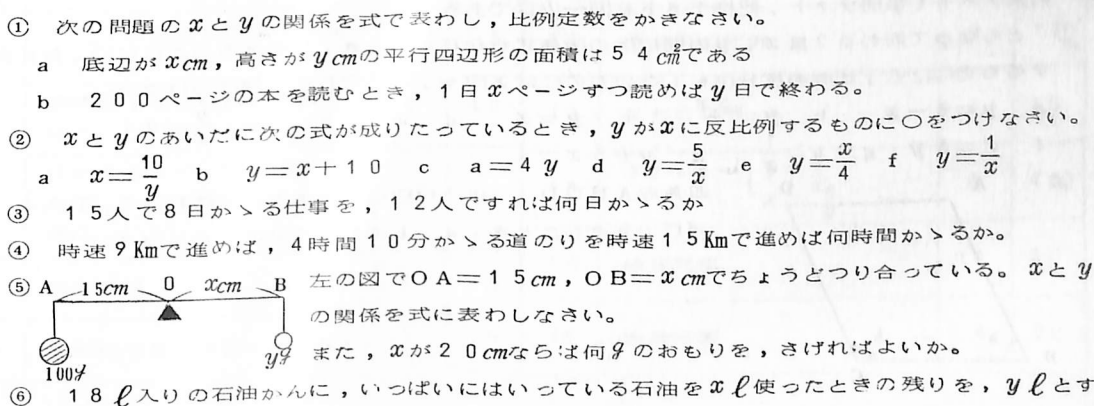 ① 次の問題のxとyの関係を式で表わし，比例定数をかきなさい。
a 底辺がxcm，高さがycmの平行四辺形の面積は54cm²である
b 200ページの本を読むとき，1日xページずつ読めばy日で終わる。
② xとyのあいだに次の式が成りたっているとき，yがxに反比例するものに○をつけなさい。
a x=10/y b y=x+10 c a=4y d y=5/x e y=x/4 f y=1/x
③ 15人で8日かゝる仕事を，12人ですれば何日かゝるか
④ 時速9Kmで進めば，4時間10分かゝる道のりを時速15Kmで進めば何時間かゝるか。
⑤ A 15cm 0 xcm B
100g
yg
左の図でOA=15cm，OB=xcmでちょうどつり合っている。xとy
の関係を式に表わしなさい。
また，xが20cmならば何gのおもりを，さげればよいか。
⑥ 18ℓ入りの石油かんに，いっぱいにはいっている石油をxℓ使ったときの残りを，yℓとす